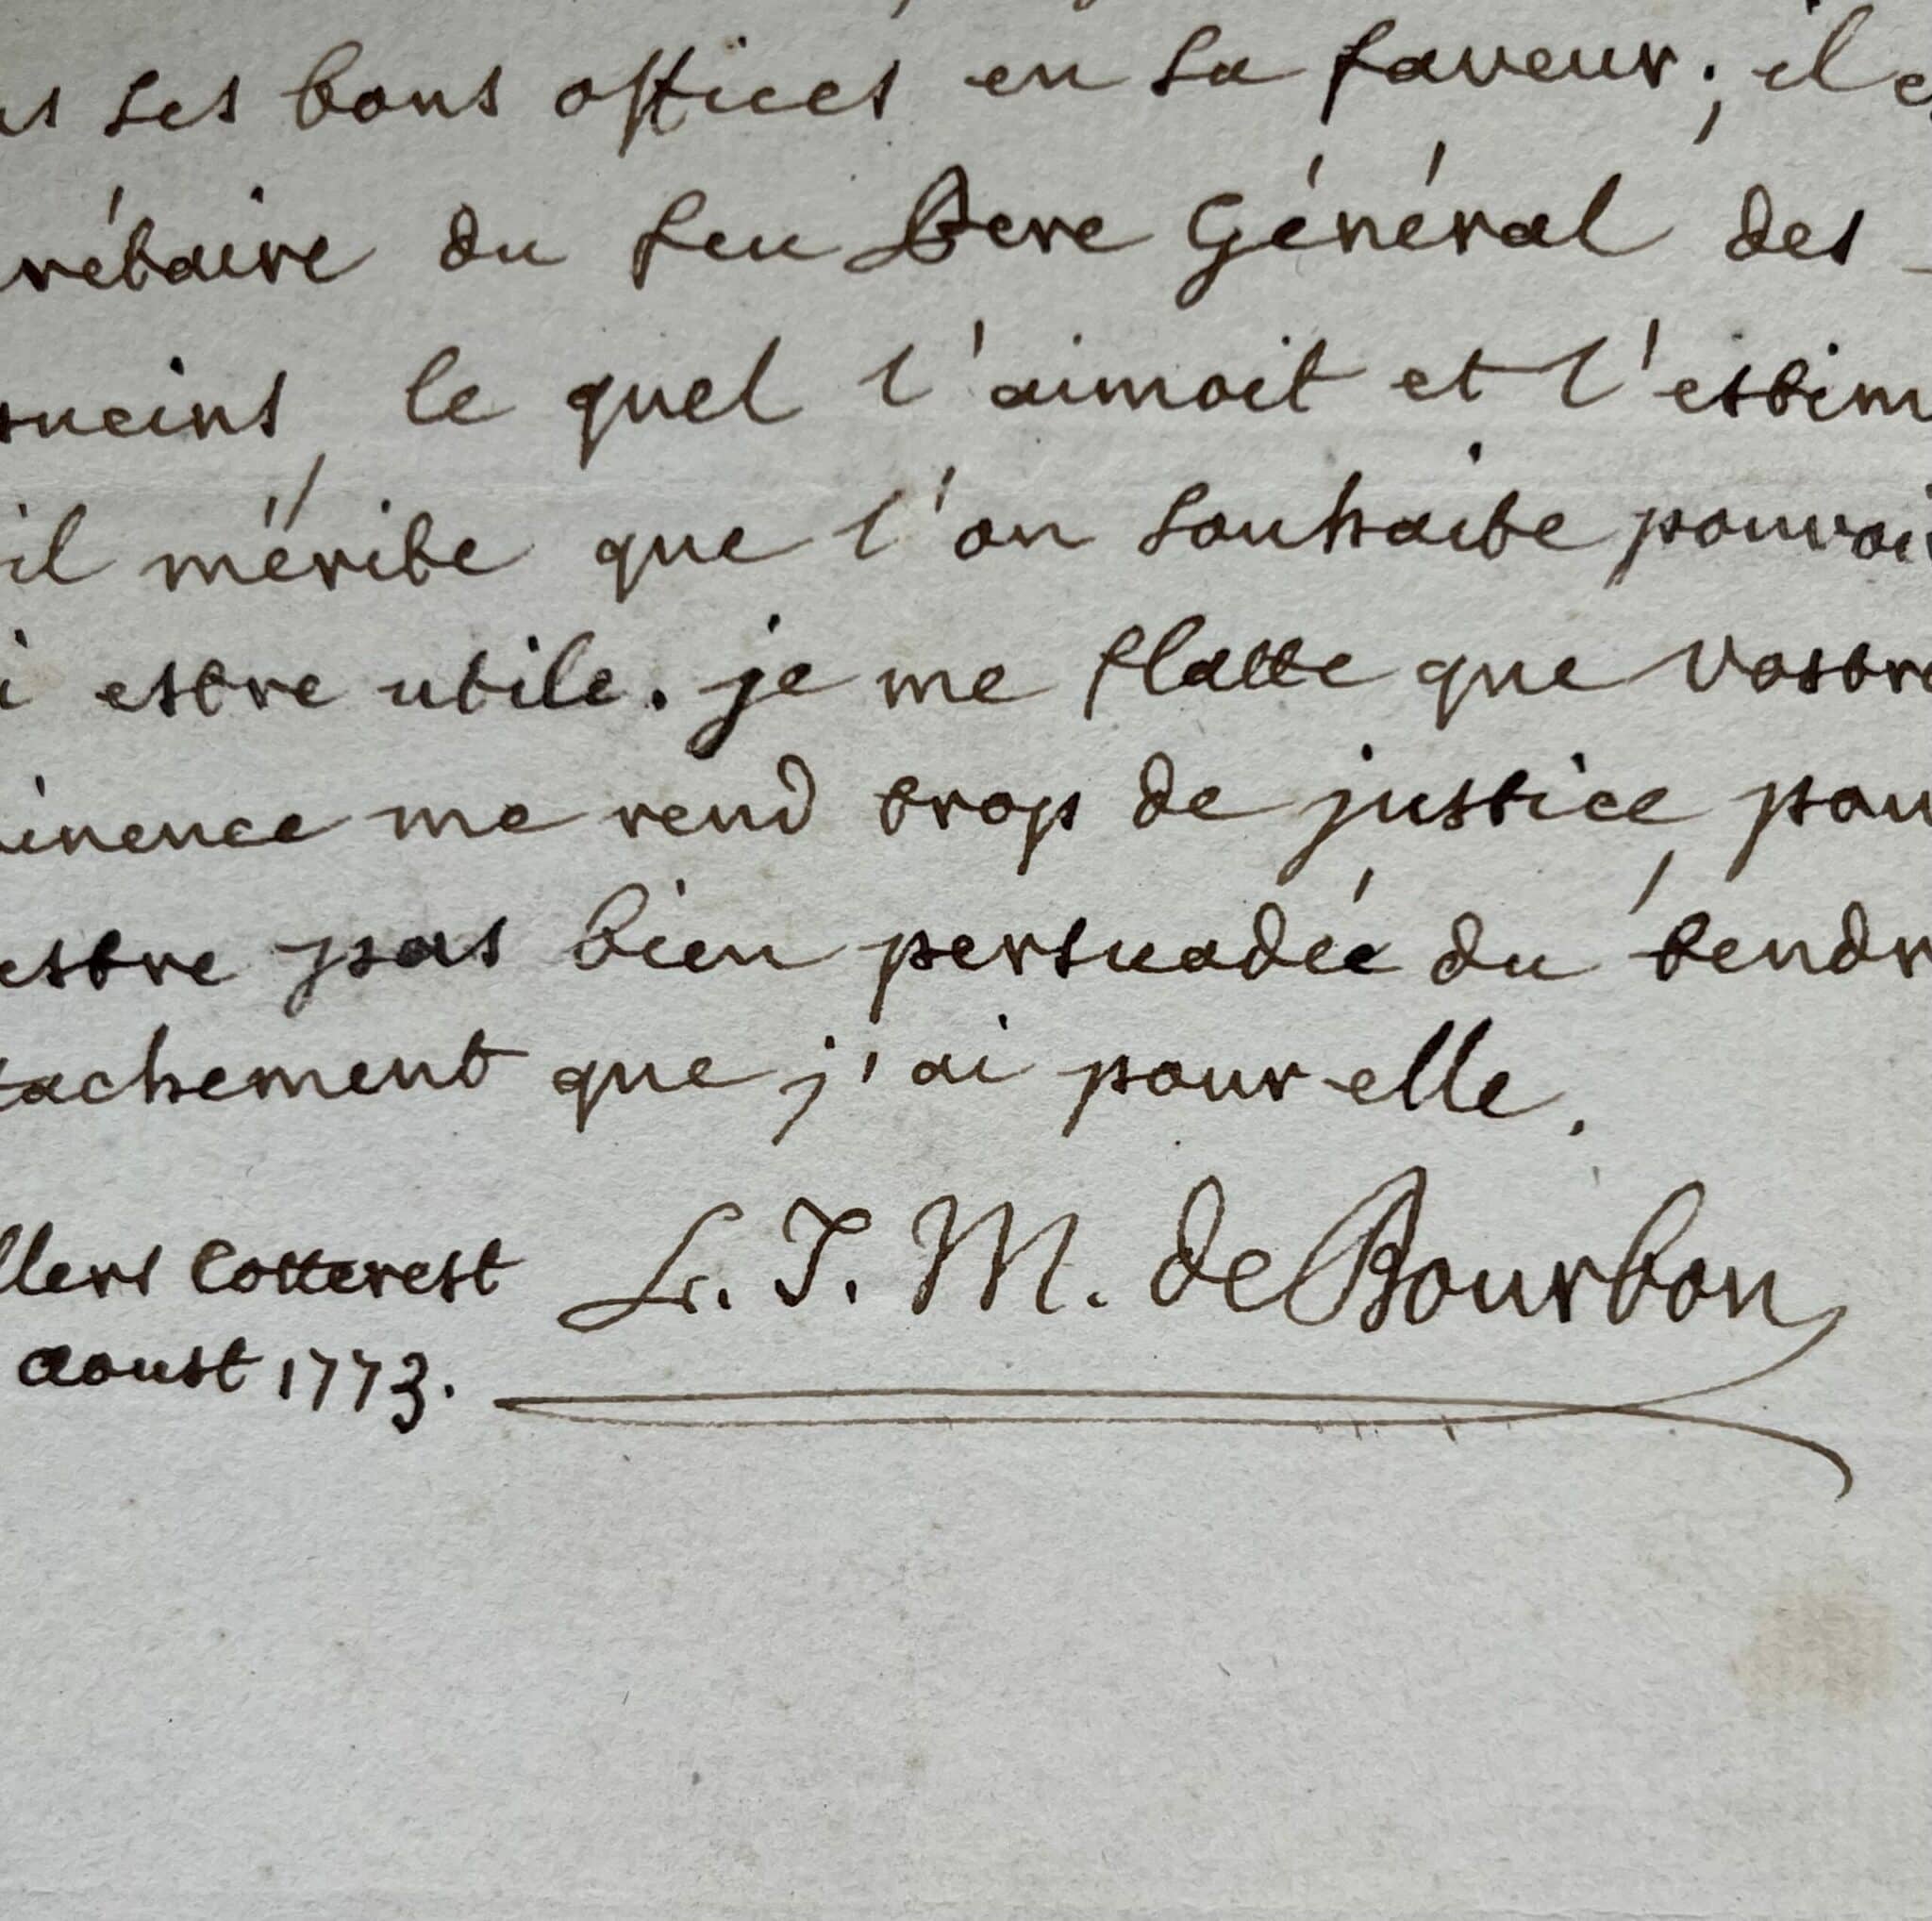 ses bons offices en sa faveur; il
rétaire du feu Pere Général des
ucins, le quel l'aimoit et l'estim
il mérite que l'on souhaite pouvoi
i estre utile. je me flatte que vostre
inence me rend trop de justice, pou
estre pas bien persuadée du tendr
tachement que j'ai pour elle.
llers Cotterest L. J. M. de Bourbon
aoust 1773.